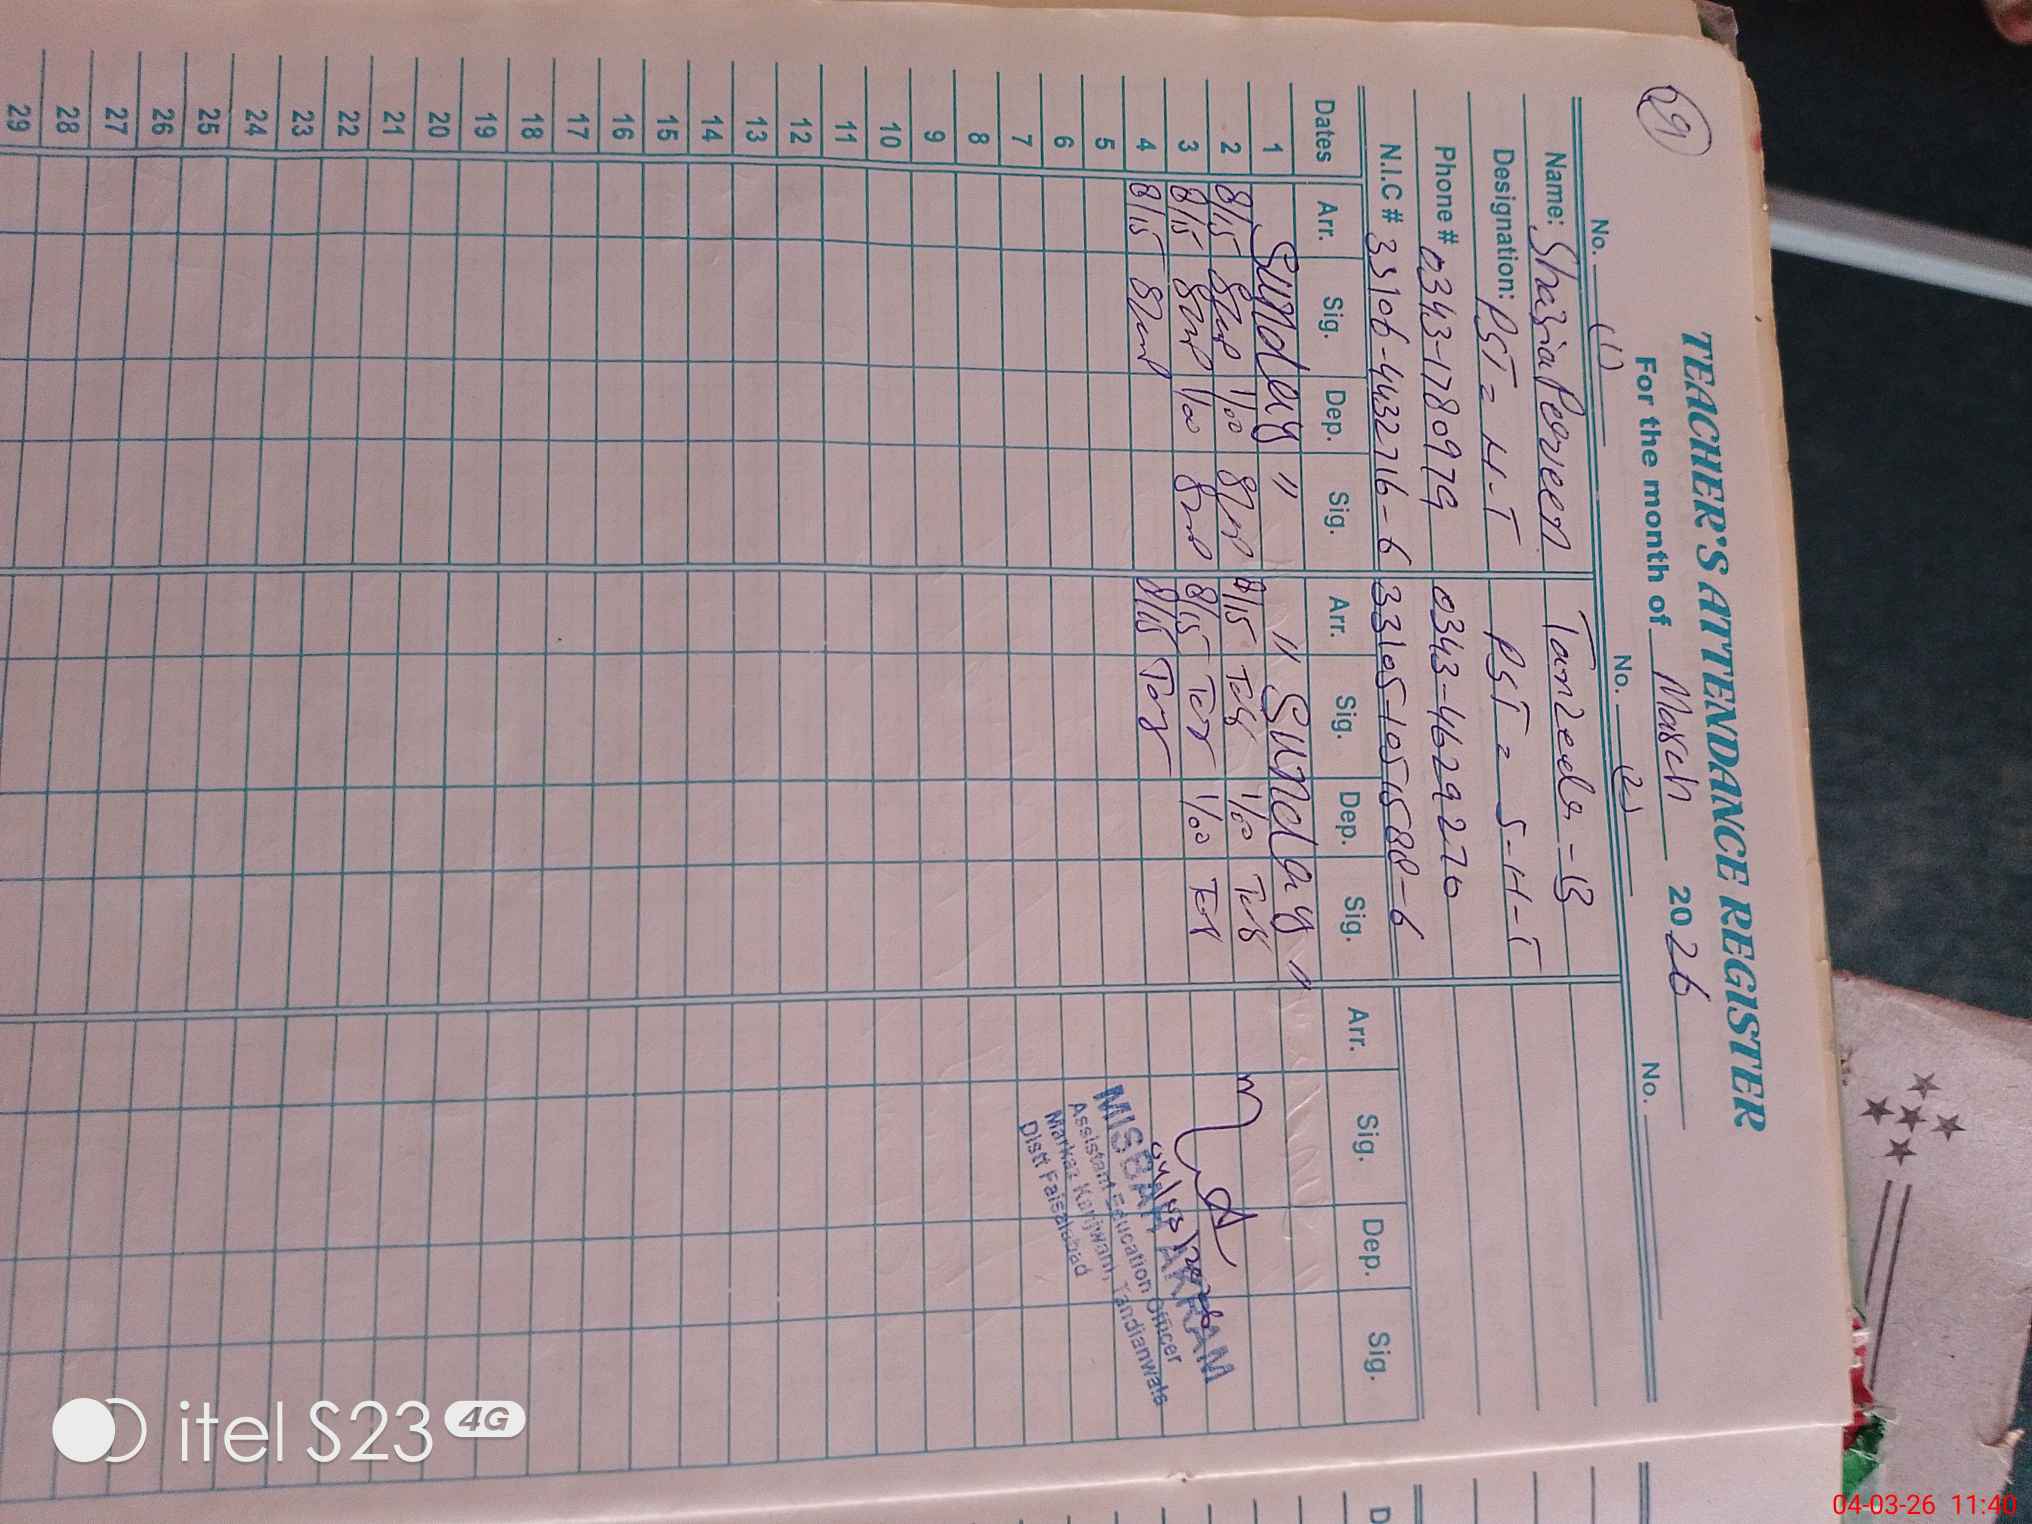 29
TEACHER'S ATTENDANCE REGISTER
For the month of March 2026
No. (1) No. (2) No.
Name: Shazia Perveen Tanzeela-B
Designation: PST = H-T PST = S-H-T
Phone # 0343-1780979 0343-4629270
N.I.C # 33106-4432716-6 33105-1051588-6
Dates Arr. Sig. Dep. Sig. Arr. Sig. Dep. Sig. Arr. Sig. Dep. Sig.
1 Sunday " " Sunday "
2 8/15 1/00 8/15 1/00
3 8/15 1/00 8/15 1/00
4 8/15 8/15
5
6
7
8
9
10
11
12
13
14
15
16
17
18
19
20
21
22
23
24
25
26
27
28
29
04/03/2026
MISBAH AKRAM
Assistant Education Officer
Markaz Kanjwani, Tandianwala
Distt Faisalabad
itel S23 4G
04-03-26 11:40